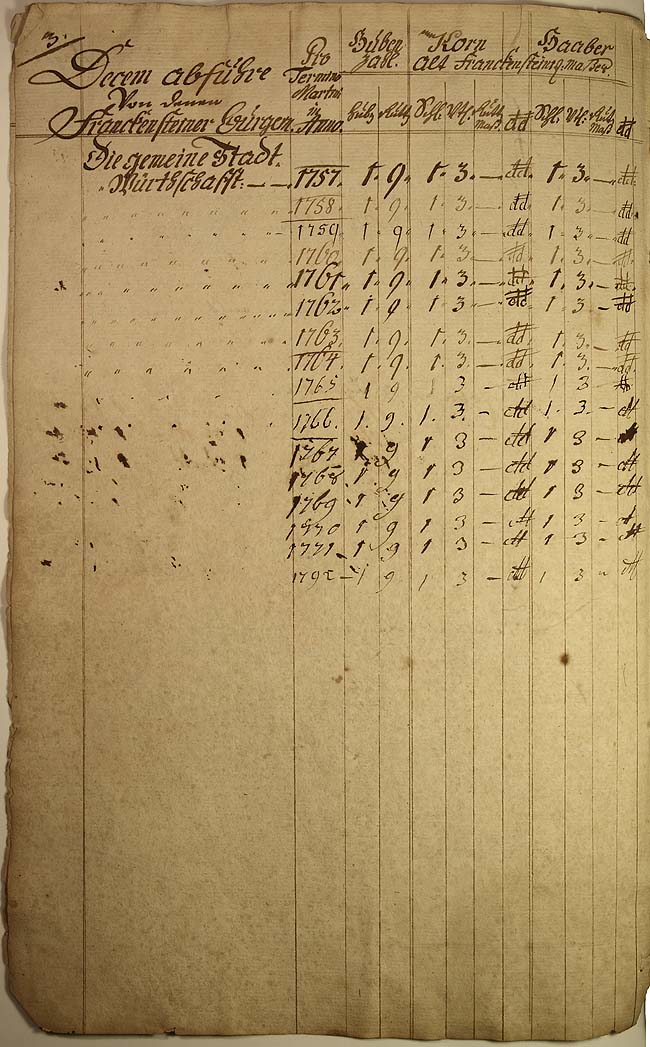 3.
Decem abführe
Von denen
Franckensteiner Bürgern
Pro
Termino
Martini
in
Anno.
Huben
Zahl.
Hub Ruth
Korn
Haaber
alt Franckensteiner Masser.
Schl. Vtl.
Schl. Vtl.
Die gemeine Stadt
Würthschafft: — — 1757. 1. 9. 1. 3. — dd. 1. 3. — dd.
1758. 1. 9. 1. 3. — dd. 1. 3. — dd.
1759 1 9 1 3 — dd. 1. 3. — dd
1760 1. 9. 1. 3. — dd 1. 3. — dd
1761 1. 9. 1. 3. — dd 1. 3. — dd.
1762 1. 9 1. 3 — dd 1. 3 — dd
1763. 1. 9. 1. 3. — dd 1. 3. — dd
1764. 1. 9. 1. 3. — dd 1. 3. — dd.
1765 1 9 1 3 — dd 1 3 dd
1766. 1. 9. 1. 3. — dd 1. 3. — dd
1767 9 1 3 — dd 1 3 —
1768 1 9 1 3 — dd 1 3 — dd
1769 1 9 1 3 — dd 1 3 — dd
1770 1 9 1 3 — dd 1 3 — dd
1771 1 9 1 3 — dd 1 3 — dd
1792 — 1 9 1 3 — dd 1 3 — dd